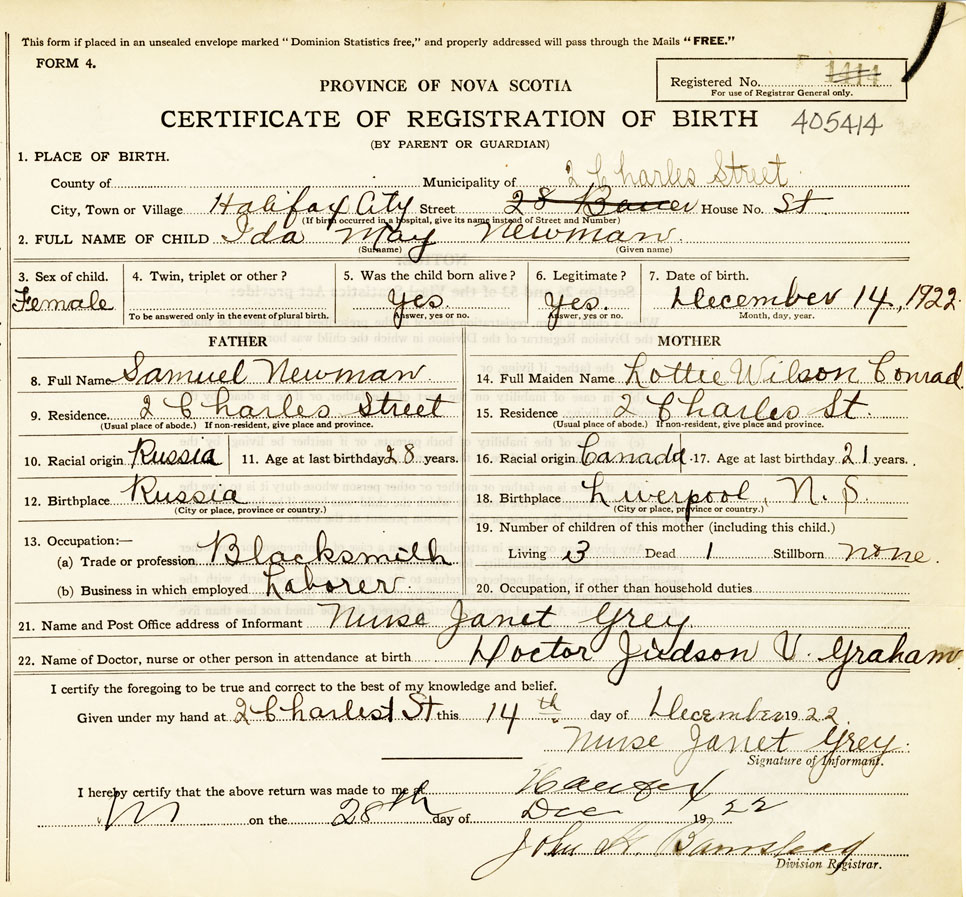 This form if placed in an unsealed envelope marked "Dominion Statistics free," and properly addressed will pass through the Mails "FREE."
FORM 4.
Registered No. 1414
For use of Registrar General only.
PROVINCE OF NOVA SCOTIA
CERTIFICATE OF REGISTRATION OF BIRTH 405414
(BY PARENT OR GUARDIAN)
1. PLACE OF BIRTH.
County of Municipality of 2 Charles Street
City, Town or Village Halifax City Street 28 Bauer House No. St
(If birth occurred in a hospital, give its name instead of Street and Number)
2. FULL NAME OF CHILD Ida May Newman
(Surname) (Given name)
3. Sex of child. 4. Twin, triplet or other? 5. Was the child born alive? 6. Legitimate? 7. Date of birth.
Female Yes. Yes. December 14, 1922
To be answered only in the event of plural birth. Answer, yes or no. Answer, yes or no. Month, day, year.
FATHER
8. Full Name Samuel Newman.
9. Residence 2 Charles Street
(Usual place of abode.) If non-resident, give place and province.
10. Racial origin Russia 11. Age at last birthday 28 years.
12. Birthplace Russia
(City or place, province or country.)
13. Occupation:—
(a) Trade or profession Blacksmith
(b) Business in which employed Laborer.
MOTHER
14. Full Maiden Name Lottie Wilson Conrad
15. Residence 2 Charles St.
(Usual place of abode.) If non-resident, give place and province.
16. Racial origin Canada 17. Age at last birthday 21 years.
18. Birthplace Liverpool, N. S.
(City or place, province or country.)
19. Number of children of this mother (including this child.)
Living 3 Dead 1 Stillborn none.
20. Occupation, if other than household duties
21. Name and Post Office address of Informant Nurse Janet Grey
22. Name of Doctor, nurse or other person in attendance at birth Doctor Judson V. Graham.
I certify the foregoing to be true and correct to the best of my knowledge and belief.
Given under my hand at 2 Charles St this 14th day of December 1922.
Nurse Janet Grey.
Signature of Informant.
I hereby certify that the above return was made to me at Halifax
on the 28th day of Dec 1922
John H. Barnstead
Division Registrar.